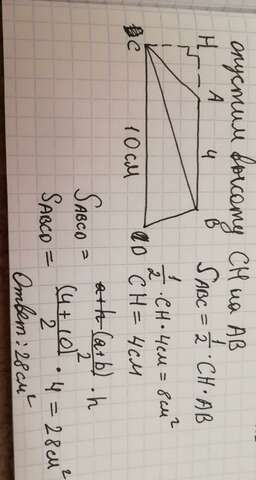 опустим высоту CH на AB
H
A
4
B
C
10см
D
S_ABC = 1/2 · CH · AB
1/2 · CH · 4см = 8см²
CH = 4см
S_ABCD = (a+b)/2 · h
S_ABCD = (4+10)/2 · 4 = 28см²
Ответ: 28см²